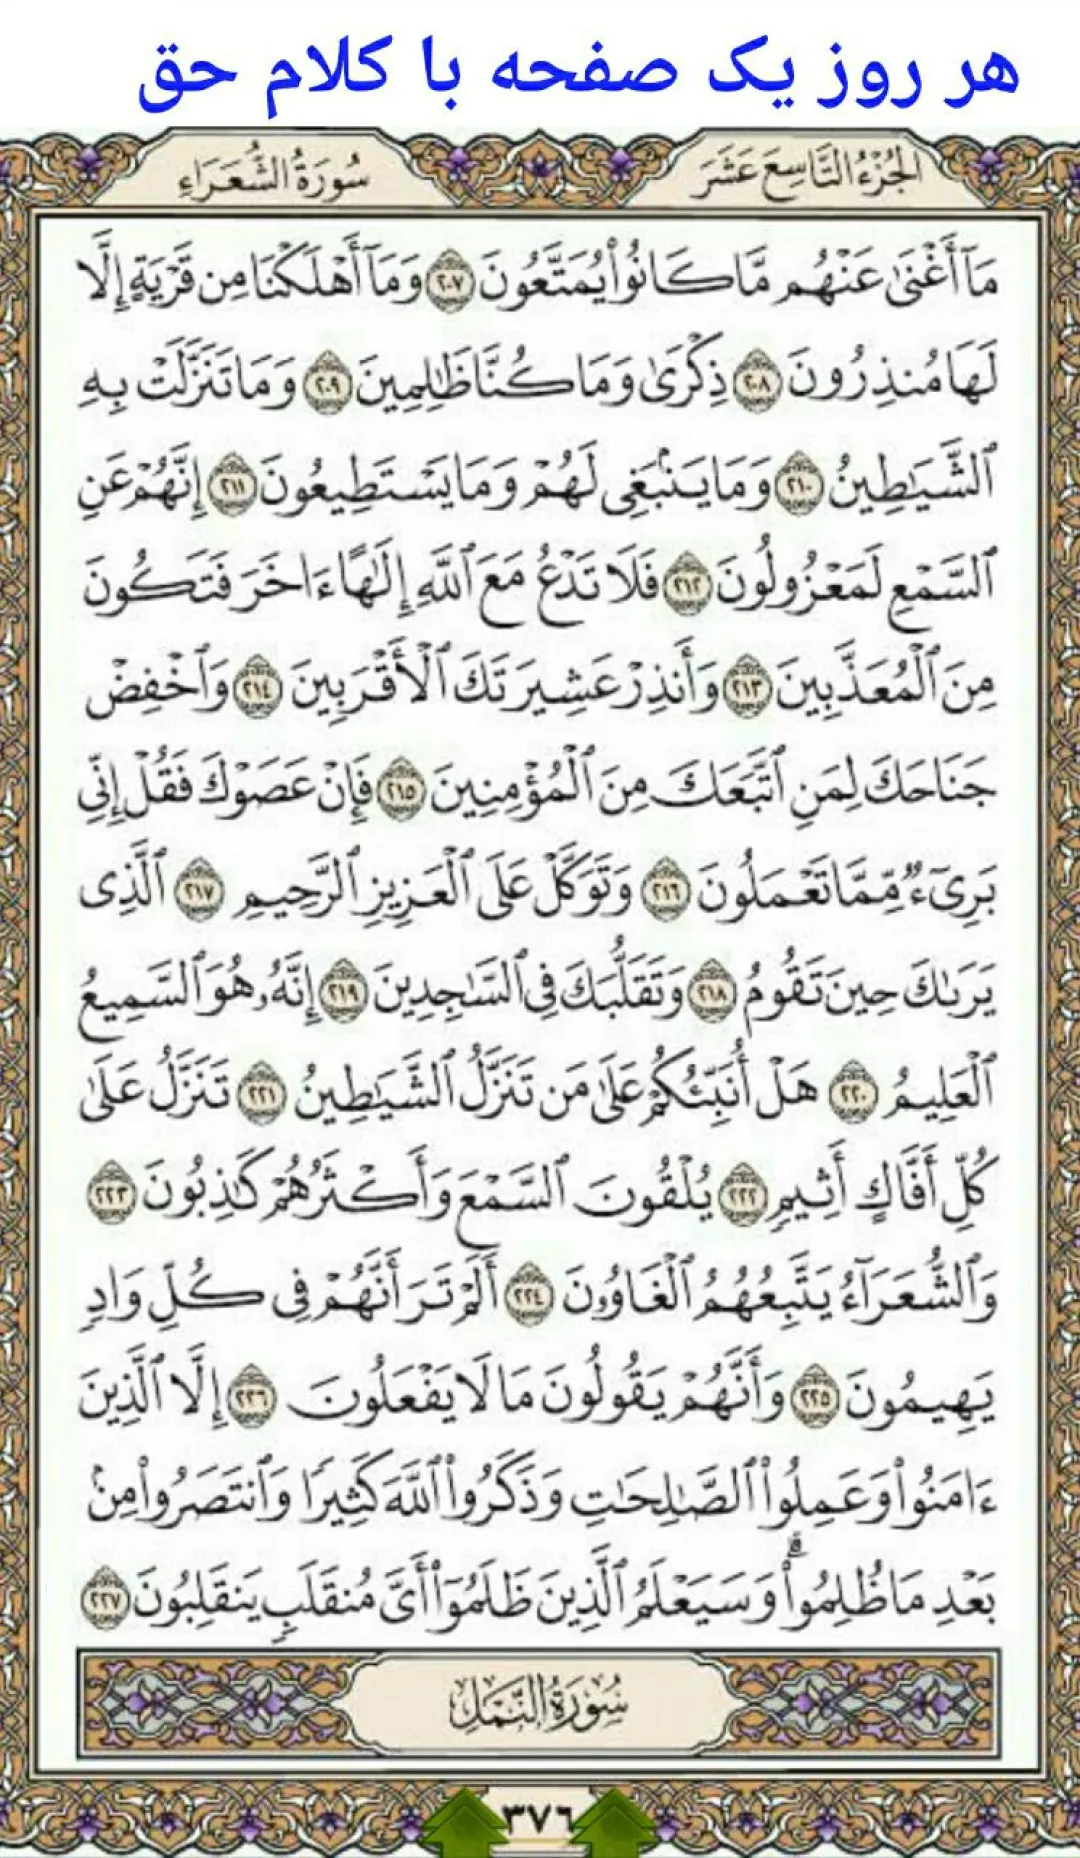 هر روز یک صفحه با کلام حق
الجُزْءُ التَّاسِعَ عَشَرَ
سُورَةُ الشُّعَرَاءِ
مَآ أَغْنَىٰ عَنْهُم مَّا كَانُوا۟ يُمَتَّعُونَ ٢٠٧ وَمَآ أَهْلَكْنَا مِن قَرْيَةٍ إِلَّا
لَهَا مُنذِرُونَ ٢٠٨ ذِكْرَىٰ وَمَا كُنَّا ظَٰلِمِينَ ٢٠٩ وَمَا تَنَزَّلَتْ بِهِ
ٱلشَّيَٰطِينُ ٢١٠ وَمَا يَنۢبَغِى لَهُمْ وَمَا يَسْتَطِيعُونَ ٢١١ إِنَّهُمْ عَنِ
ٱلسَّمْعِ لَمَعْزُولُونَ ٢١٢ فَلَا تَدْعُ مَعَ ٱللَّهِ إِلَٰهًا ءَاخَرَ فَتَكُونَ
مِنَ ٱلْمُعَذَّبِينَ ٢١٣ وَأَنذِرْ عَشِيرَتَكَ ٱلْأَقْرَبِينَ ٢١٤ وَٱخْفِضْ
جَنَاحَكَ لِمَنِ ٱتَّبَعَكَ مِنَ ٱلْمُؤْمِنِينَ ٢١٥ فَإِنْ عَصَوْكَ فَقُلْ إِنِّى
بَرِىٓءٌ مِّمَّا تَعْمَلُونَ ٢١٦ وَتَوَكَّلْ عَلَى ٱلْعَزِيزِ ٱلرَّحِيمِ ٢١٧ ٱلَّذِى
يَرَىٰكَ حِينَ تَقُومُ ٢١٨ وَتَقَلُّبَكَ فِى ٱلسَّٰجِدِينَ ٢١٩ إِنَّهُۥ هُوَ ٱلسَّمِيعُ
ٱلْعَلِيمُ ٢٢٠ هَلْ أُنَبِّئُكُمْ عَلَىٰ مَن تَنَزَّلُ ٱلشَّيَٰطِينُ ٢٢١ تَنَزَّلُ عَلَىٰ
كُلِّ أَفَّاكٍ أَثِيمٍ ٢٢٢ يُلْقُونَ ٱلسَّمْعَ وَأَكْثَرُهُمْ كَٰذِبُونَ ٢٢٣
وَٱلشُّعَرَآءُ يَتَّبِعُهُمُ ٱلْغَاوُۥنَ ٢٢٤ أَلَمْ تَرَ أَنَّهُمْ فِى كُلِّ وَادٍ
يَهِيمُونَ ٢٢٥ وَأَنَّهُمْ يَقُولُونَ مَا لَا يَفْعَلُونَ ٢٢٦ إِلَّا ٱلَّذِينَ
ءَامَنُوا۟ وَعَمِلُوا۟ ٱلصَّٰلِحَٰتِ وَذَكَرُوا۟ ٱللَّهَ كَثِيرًا وَٱنتَصَرُوا۟ مِنۢ
بَعْدِ مَا ظُلِمُوا۟ ۗ وَسَيَعْلَمُ ٱلَّذِينَ ظَلَمُوٓا۟ أَىَّ مُنقَلَبٍ يَنقَلِبُونَ ٢٢٧
سُورَةُ النَّمْلِ
٣٧٦